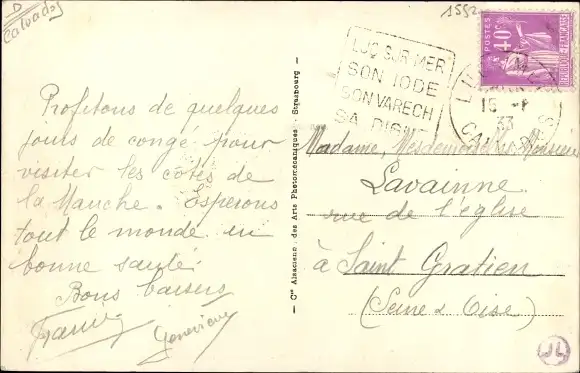 D
Calvados
1552
POSTES
40c
REPUBLIQUE FRANÇAISE
LUC SUR MER
SON IODE
SON VARECH
SA DIGUE
15 -8
33
Profitons de quelques
jours de congé pour
visiter les côtes de
la Manche. Espérons
tout le monde en
bonne santé.
Bons baisers
Geneviève
Cie Alsacienne des Arts Photomécaniques - Strasbourg
Madame, Mesdemoiselles, Monsieur
Lavainne
rue de l'église
à Saint Gratien
(Seine & Oise)
JL